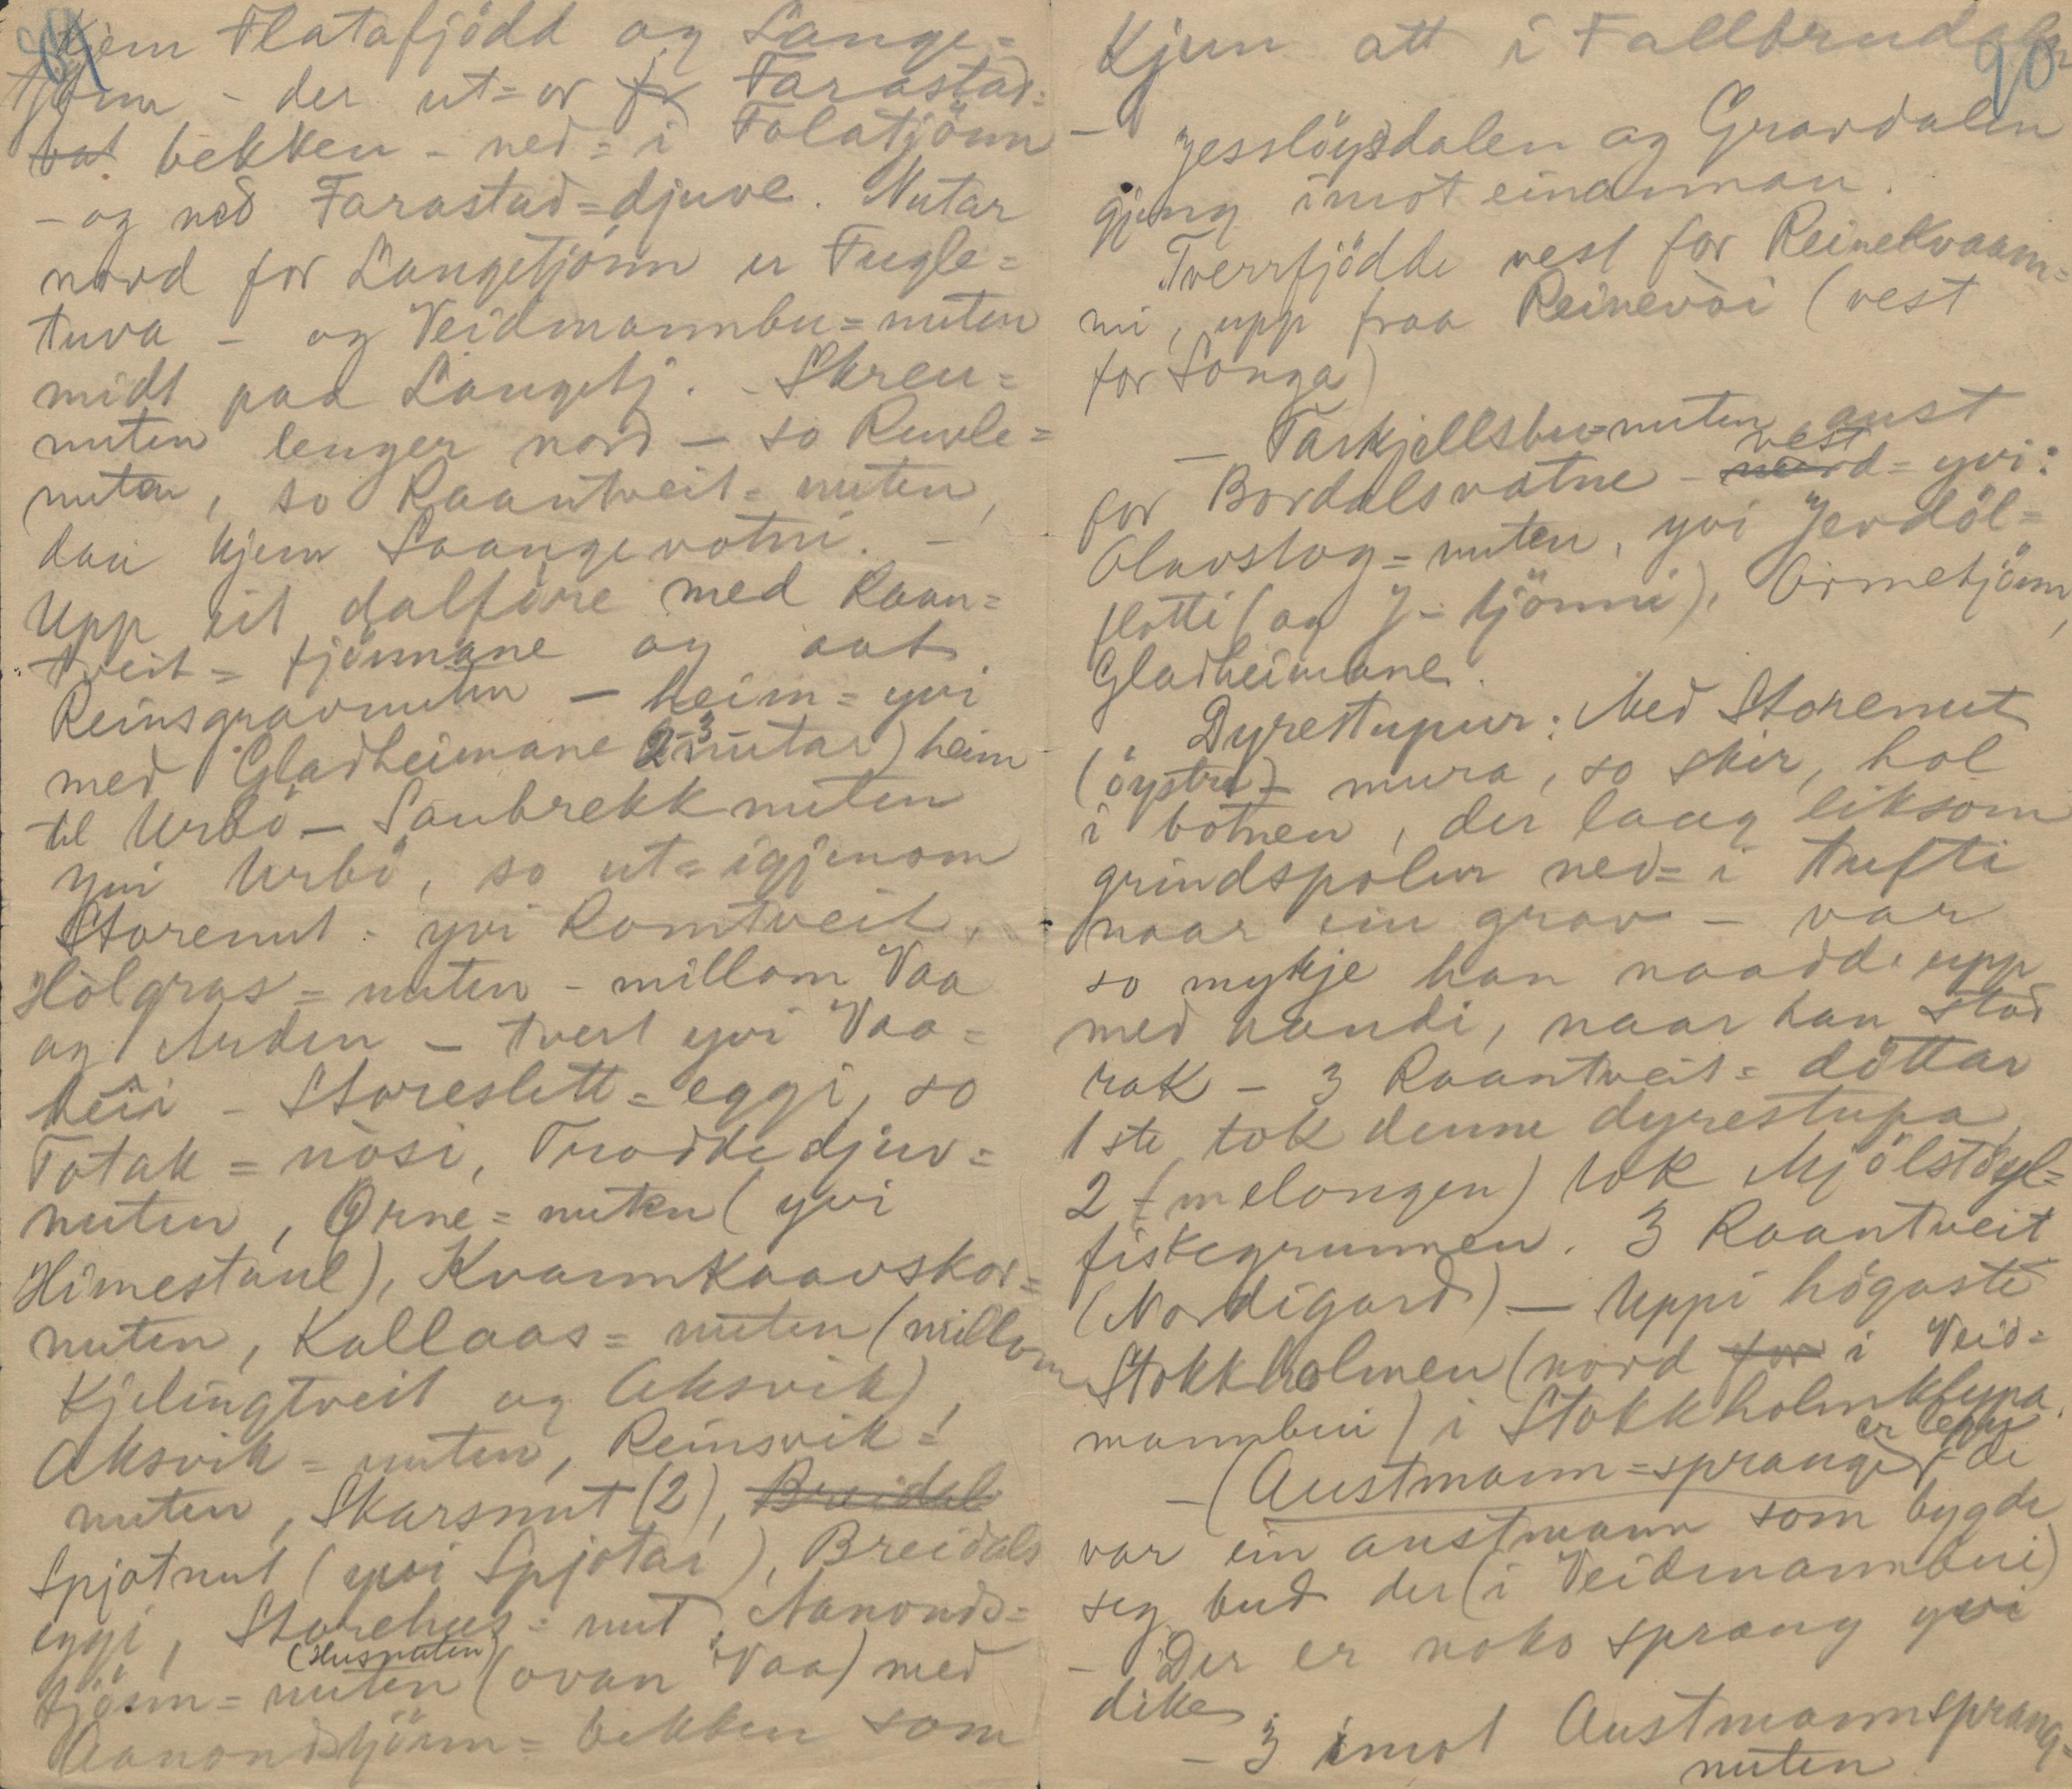 89
kjem Flatafjödd og Lange=
tjönn - der ut=or fr Farastad=
vat bekken - ned=i Folatjönn
- og ned Farastad=djuve. Nutar
nord for Langetjönn er Fugle=
tuva - og Veidmannbu=nuten
midt paa Langetj. - Skreu=
nuten lenger nord - so Reuvle=
nuten, so Raantveit=nuten,
daa kjem Saangevotni. -
Upp eit dalföre med Raan=
tveit=tjönnane og aat
Reinsgravnuten - heim=yvi
med Gladheimane (2-3 nutar) heim
til Urbö - Saubrekknuten
yvi Urbö, so ut=igjenom
Storenut - yvi Romtveit,
Hölgras=nuten - millom Vaa
og Arden - tvert yvi Vaa=
heii - Storeslett=eggi, so
Totak=nosi, Troddedjuv=
nuten, Örne=nuten (yvi
Himestaul), Kvamkaavskor=
nuten, Kallaas=nuten (millom
Kjelingtveit og Aksvik),
Aksvik=nuten, Reinsvik=
nuten, Skarsnut (2), Breidal
Spjotnut (yvi Spjotar), Breidals
eggi, Storehus=nut, Aanonds=
(Husnuten)
tjönn=nuten (ovan Vaa) med
Aanondstjönn=bekken som
90
Kjem att i Fallbrudalen
- Jesslöysdalen og Gravdalen
gjeng imot einannan.
Tverrfjödde vest for Reinekvaam=
ni, upp fraa Reinevòi (vest
for Songa)
- Tarkjellsbu=nuten aust
vest
for Bordalsvatne - nord=yvi:
Olavslog=nuten, yvi Jerdöl=
flotti (og J-tjönni), Ormetjönn,
Gladheimane.
Dyrestupur: Med Storenut
(öystre) - mura, so skir, hol
i botnen, der laag liksom
grindspolur ned=i tufti
naar ein grov - var
so mykje han naadde upp
med handi, naar han stod
rak - 3 Raantveit=döttar
1ste tok denne dyrestupa,
2 (melongen) tok Mjölstöyl=
fiskegrunnen. 3 Raantveit
(Nordigard) - Uppi högaste
Stokkholmen (nord for i Veid=
mannbui) i Stokkholmkleypa.
er löpur
- (Austmann=spranget - de
var ein austmann som bygde
seg bud der (i Veidmannbui)
- Der er noko sprang yvi
dike
- 3 imot Austmannsprang=
nuten